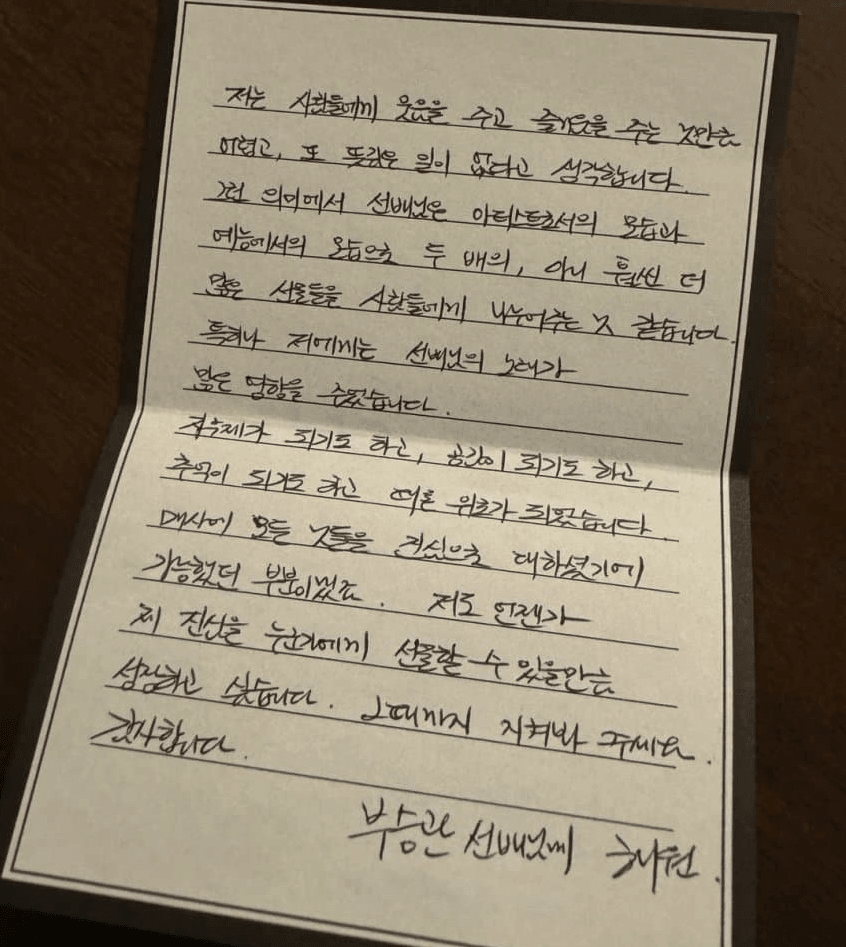 저는 사람들에게 웃음을 주고 즐거움을 주는 것만큼
어렵고, 또 뜻깊은 일이 없다고 생각합니다.
그런 의미에서 선배님은 아티스트로서의 모습과
예능에서의 모습으로 두 배의, 아니 훨씬 더
많은 선물들을 사람들에게 나누어주는 것 같습니다.
특히나 저에게는 선배님의 노래가
많은 영향을 주었습니다.
치유제가 되기도 하고, 공간이 되기도 하고,
추억이 되기도 하고 때론 위로가 되었습니다.
매사에 모든 것들을 진심으로 대하셨기에
가능했던 부분이겠죠. 저도 언젠가
제 진심을 누군가에게 선물할 수 있을만큼
성장하고 싶습니다. 그때까지 지켜봐 주세요.
감사합니다.
부승관 선배님께